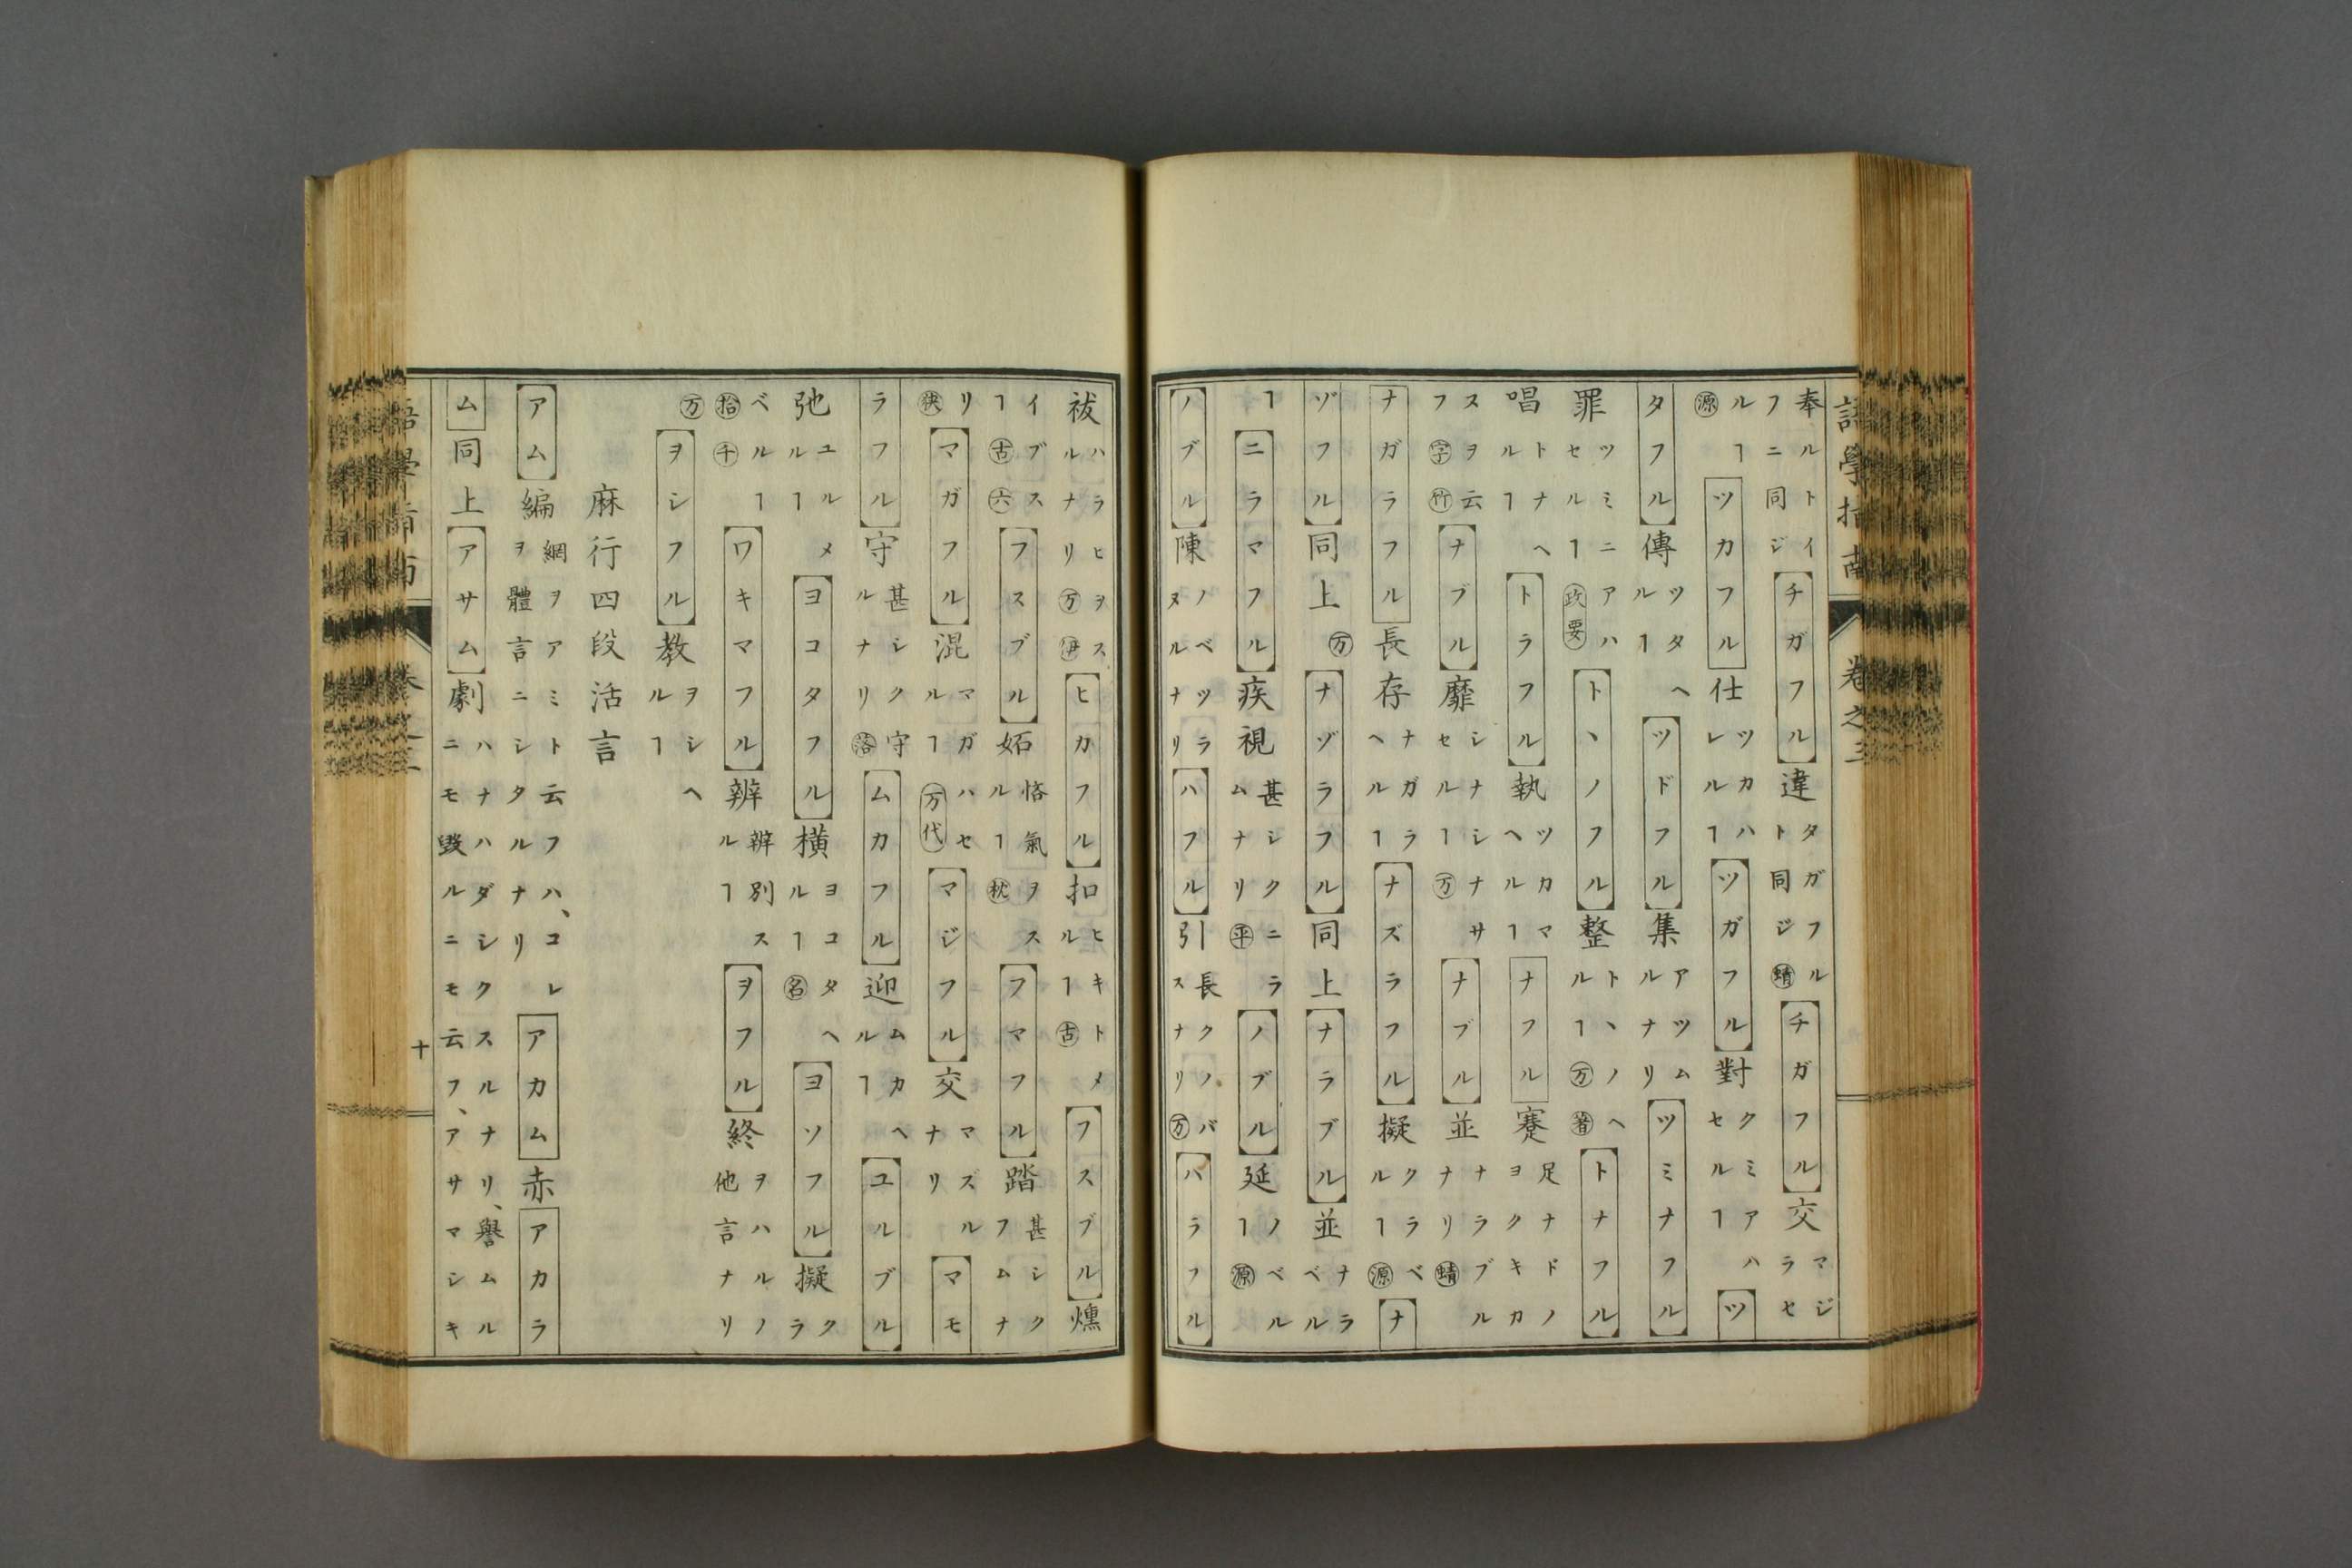 語學指南 卷之三
奉ルトイフニ同ジ【チガフル】違タガフルト同ジ蜻【チガフル】交マジラセ
ルヿ源【ツカフル】仕ツカハレルヿ【ツガフル】對クミアハセルヿ【ツ
タフル】傳ツタヘルヿ【ツドフル】集アツムルナリ【ツミナフル】
罪ツミニアハセルヿ政要【トヽノフル】整トヽノヘルヿ万著【トナフル】
唱トナヘルヿ【トラフル】執ツカマヘルヿ【ナフル】蹇足ナドノヨクキカ
ヌヲ云フ字竹【ナブル】靡シナシナサセルヿ万【ナブル】並ナラブルナリ蜻
【ナガラフル】長存ナガラヘルヿ【ナズラフル】擬クラベルヿ源【ナ
ゾフル】同上万【ナゾラフル】同上【ナラブル】並ナラベル
ヿ【ニラマフル】疾視甚シクニラムナリ平【ノブル】延ノベルヿ源
【ノブル】陳ノベツラヌルナリ【ハフル】引長クノバスナリ万【ハラフル】
祓ハラヒヲスルナリ万伊【ヒカフル】扣ヒキトメルヿ古【フスブル】燻
イブスヿ古六【フスブル】妬悋氣ヲスルヿ枕【フマフル】踏甚シクフムナ
リ狭【マガフル】混マガハセルヿ万代【マジフル】交マズルナリ【マモ
ラフル】守甚シク守ルナリ落【ムカフル】迎ムカヘルヿ【ユルブル】
弛ユルメルヿ【ヨコタフル】横ヨコタヘルヿ名【ヨソフル】擬クラ
ベルヿ拾千【ワキマフル】辨辨別スルヿ【ヲフル】終ヲハルノ他言ナリ
万【ヲシフル】教ヲシヘルヿ
麻行四段活言
【アム】編網ヲアミト云フハ、コレヲ體言ニシタルナリ【アカム】赤【アカラ
ム】同上【アサム】劇ハナハダシクスルナリ、譽ムルニモ毀ルニモ云フ、アサマシキ
十